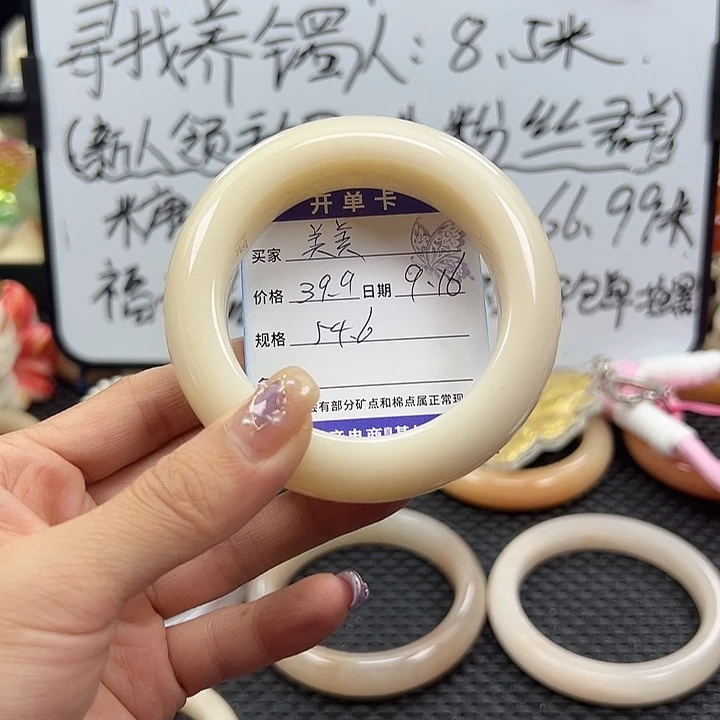 寻找养镯人：8.5米
（新人领 粉丝群）
米 66.99米
福 包单 拉黑
开单卡
买家 美美
价格 39.9 日期 9.16
规格 54.6
有部分矿点和棉点属正常现
电商